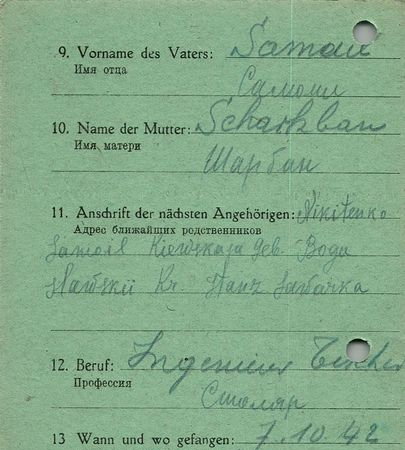 9. Vorname des Vaters: Samoil
Имя отца
Самоил
10. Name der Mutter: Scharkban
Имя матери
Шарбан
11. Anschrift der nächsten Angehörigen: Nikitenko
Адрес ближайших родственников
Samoil Kiewskaja Geb. Bogu
Kr.
12. Beruf: Ingenieur
Профессия
Столяр
13 Wann und wo gefangen: 7.10.42